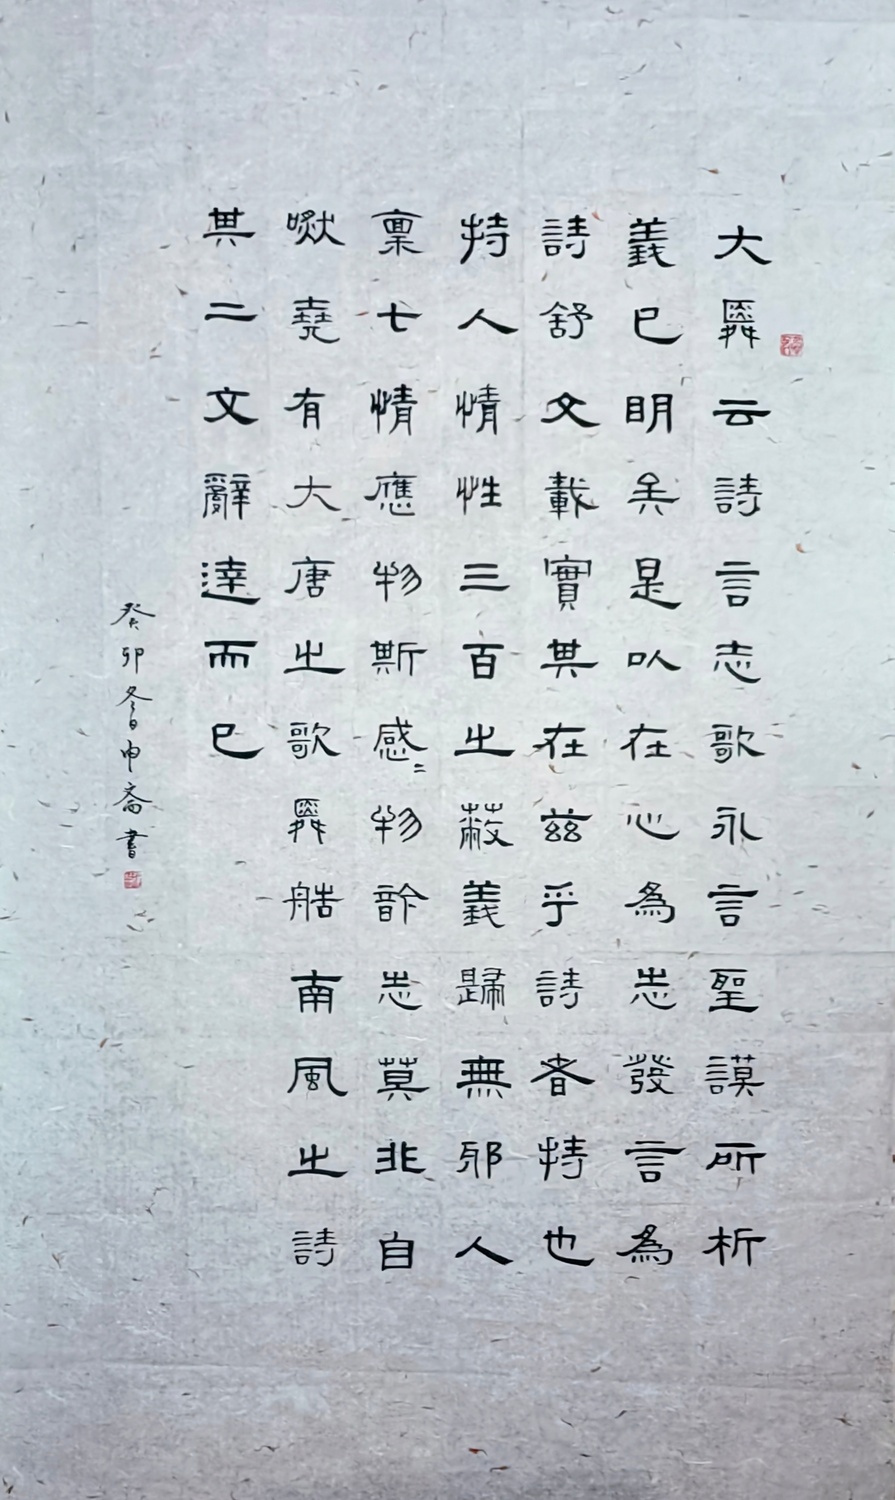 大舜云詩言志歌永言聖謨所析
義已明矣是以在心為志發言為
詩舒文載實其在茲乎詩者持也
持人情性三百之蔽義歸無邪人
稟七情應物斯感〻物訡志莫非自
嘫堯有大唐之歌舜艁南風之詩
其二文辭達而已
癸卯冬日申斎書